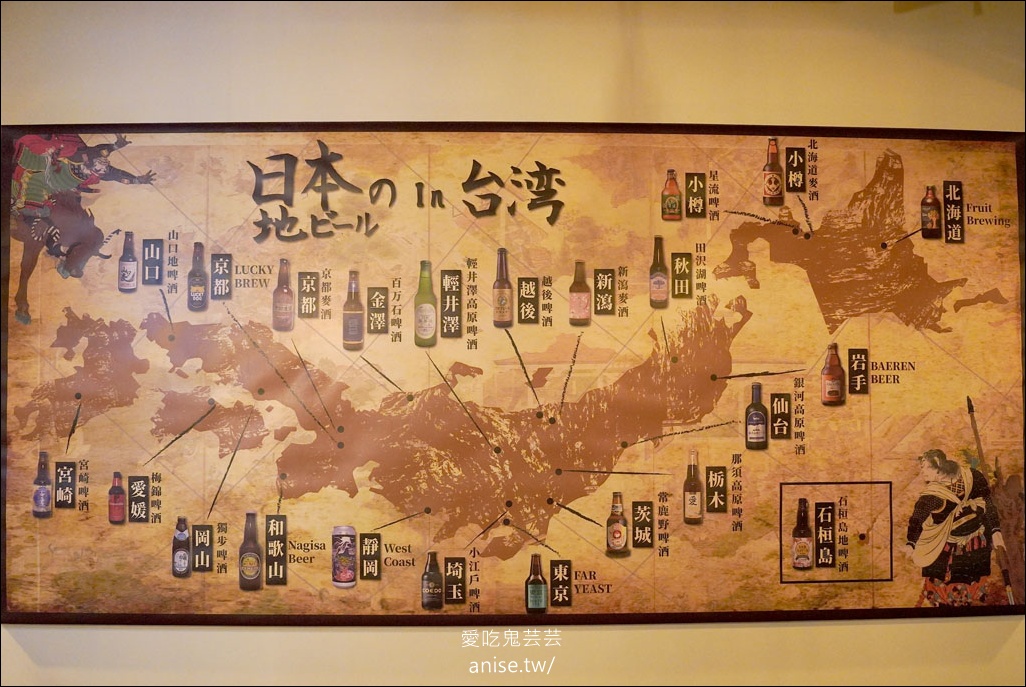 日本の In 台湾
地ビール
小樽
北海道麥酒
小樽
星流啤酒
北海道
Fruit
Brewing
山口
山口地啤酒
京都
LUCKY
BREW
京都
京都麥酒
金澤
百万石啤酒
輕井澤
輕井澤高原啤酒
越後
越後啤酒
新瀉
新瀉麥酒
秋田
田沢湖啤酒
岩手
BAEREN
BEER
仙台
銀河高原啤酒
宮崎
宮崎啤酒
愛媛
梅錦啤酒
岡山
獨步啤酒
和歌山
Nagisa
Beer
靜岡
West
Coast
埼玉
小江戶啤酒
東京
FAR
YEAST
茨城
常鹿野啤酒
栃木
那須高原啤酒
石垣島
石垣島地啤酒
愛吃鬼芸芸
anise.tw/